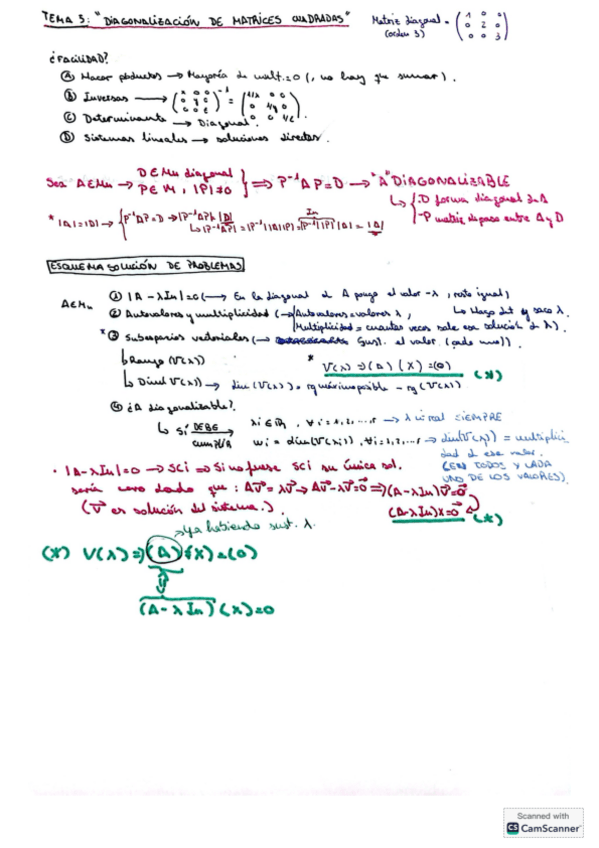 TEMA 3: "DIAGONALIZACIÓN DE MATRICES CUADRADAS"
Matriz diagonal = (1 0 0
(orden 3) 0 2 0
0 0 3)
¿FACILIDAD?
Ⓐ Hacer productos → Mayoría de mult.=0 (, no hay que sumar).
Ⓑ Inversas → ( )⁻¹ = ( )
Ⓒ Determinante → Diagonal.
Ⓓ Sistemas lineales → soluciones directas.
Sea A∈Mn → D∈Mn diagonal
P∈M, |P|≠0 } ⇒ P⁻¹AP=D → "A" DIAGONALIZABLE
↳ { ·D forma diagonal de A
·P matriz de paso entre A y D
* |A|=|D| → { P⁻¹AP=D → |P⁻¹AP|=|D|
↳ |P⁻¹AP|=|P⁻¹||A||P|=|P⁻¹||P||A|=|A|
In
ESQUEMA SOLUCIÓN DE PROBLEMAS
A∈Mn
① |A-λIn|=0 (→ En la diagonal de A pongo el valor -λ, resto igual)
② Autovalores y multiplicidad (→ Autovalores=valores λ, ↳ Hago det y saco λ.
Multiplicidad = cuantas veces sale esa solución de λ).
* ③ Subespacios vectoriales (→ Sust. el valor. (cada uno)).
↳ Rango (V(λ))
* V(λ) ⇒ (A)(X)=(0) (*)
↳ Dimd V(λ) → dim(V(λ)) = rg máximo posible - rg(V(λ))
④ ¿A diagonalizable?
↳ Sí DEBE CUMPLIR → λi∈ℝ, ∀i=1,2,...,s → λ real SIEMPRE
wi = dim(V(λi)), ∀i=1,2,...s → dim(V(λ)) = multiplici
dad d ese valor.
(EN TODOS Y CADA
UNO DE LOS VALORES).
· |A-λIn|=0 → SCI ⇒ Si no fuese SCI su única sol.
sería cero dado que: Av⃗=λv⃗ → Av⃗-λv⃗=0⃗ ⇒ (A-λIn)v⃗=0⃗
(v⃗ es solución del sistema.).
(A-λIn)X=0⃗ (*)
→ya habiendo sust. λ.
(*) V(λ) ⇒ (A)·(X)=(0)
⇕
(A-λIn)(X)=0
Scanned with
CS CamScanner